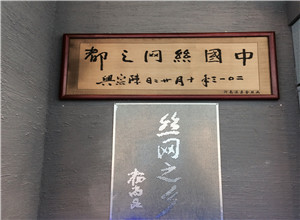 中國絲网之都
二〇一三年十月廿二日 陳宗興
絲网之乡